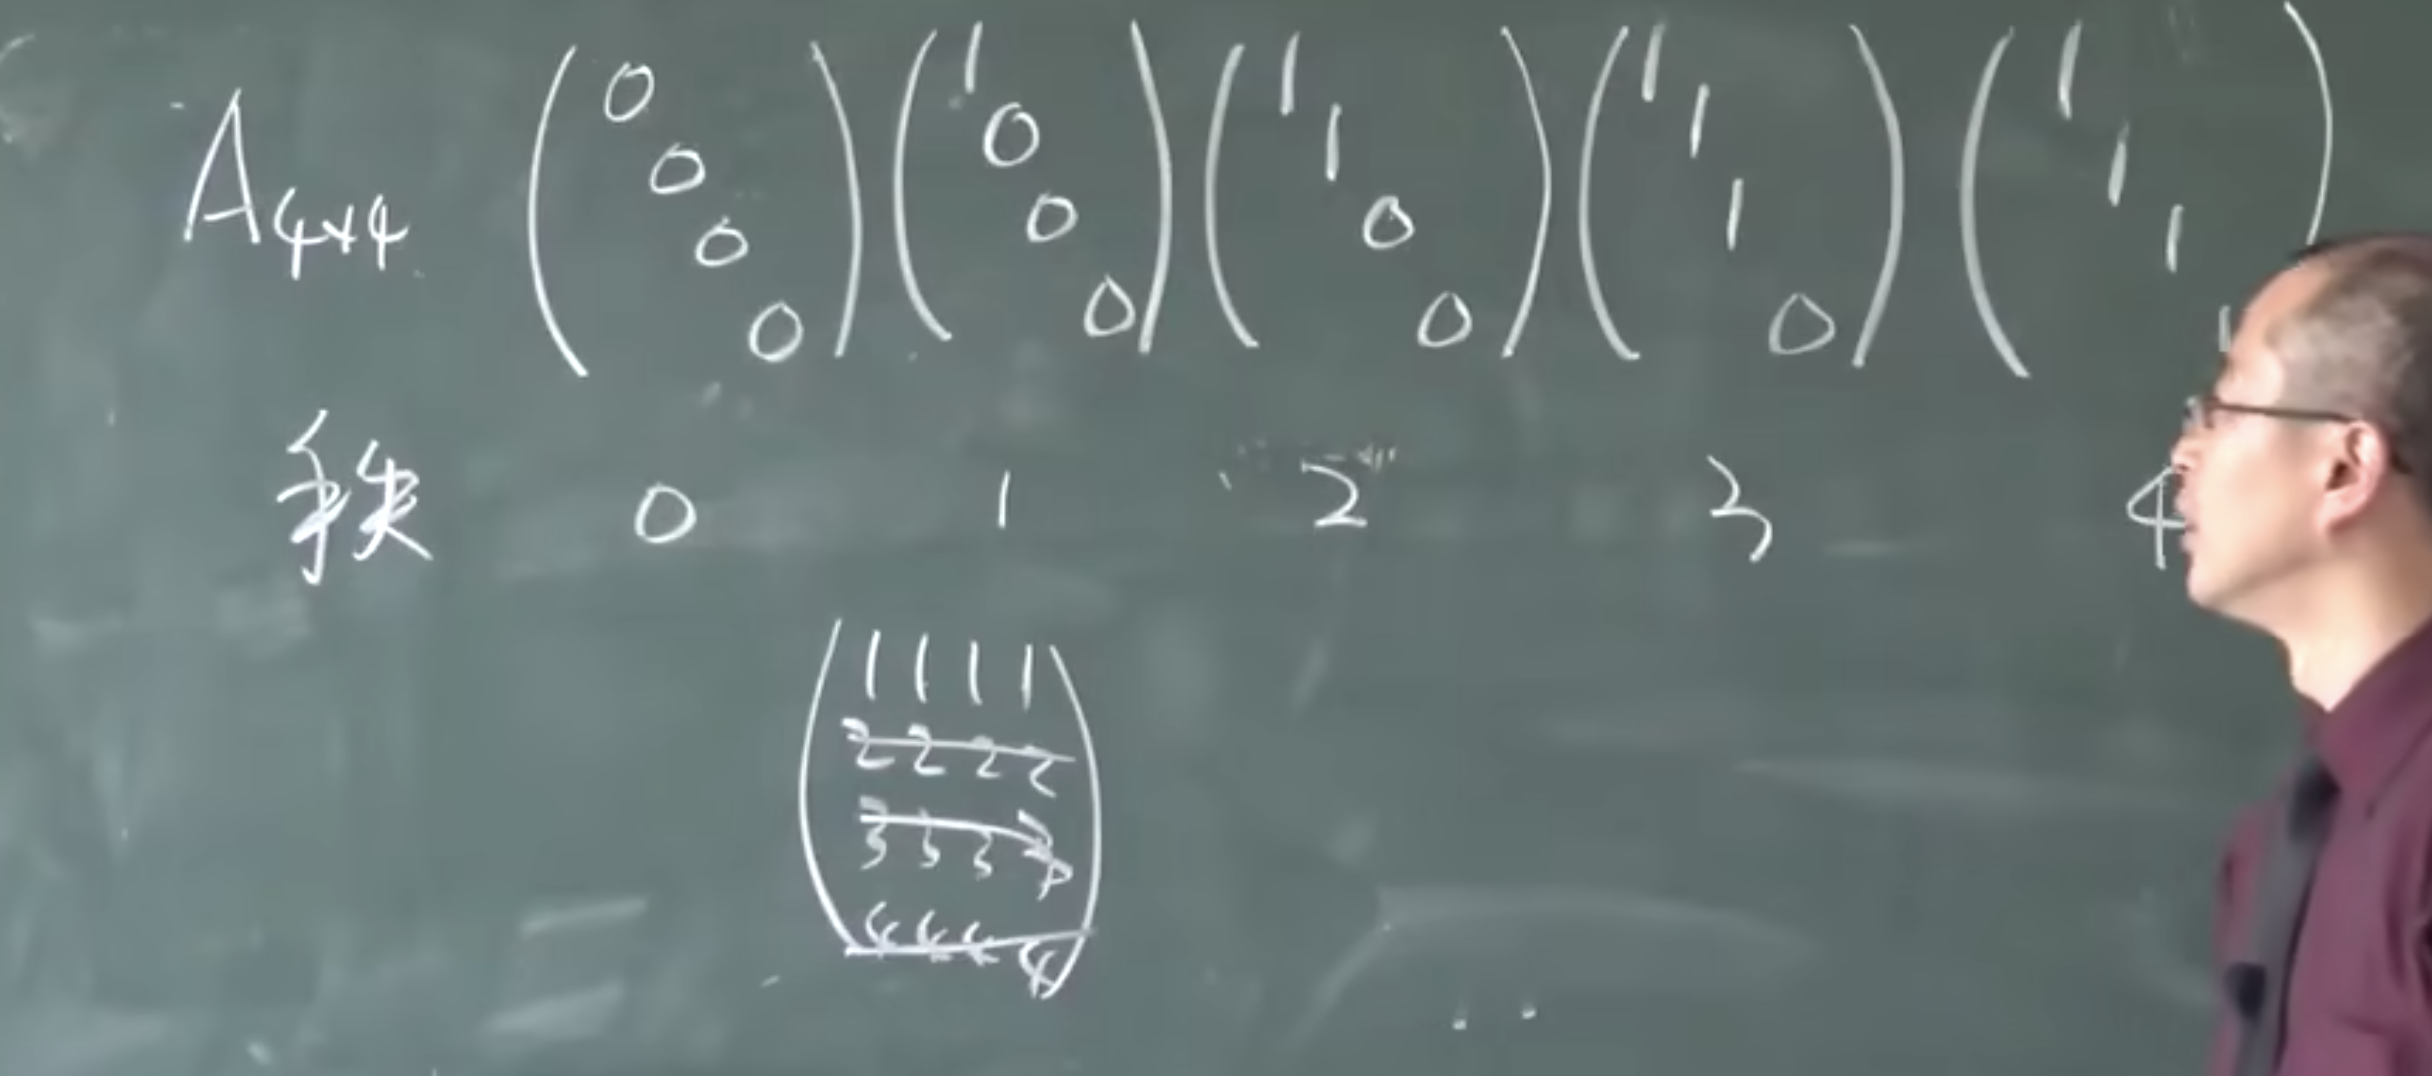 A4×4 ( 0 0 0 0 ) ( 1 0 0 0 ) ( 1 1 0 0 ) ( 1 1 1 0 ) ( 1 1 1 1 )
秩 0 1 2 3 4
1 1 1 1
2 2 2 2
3 3 3 3
4 4 4 4